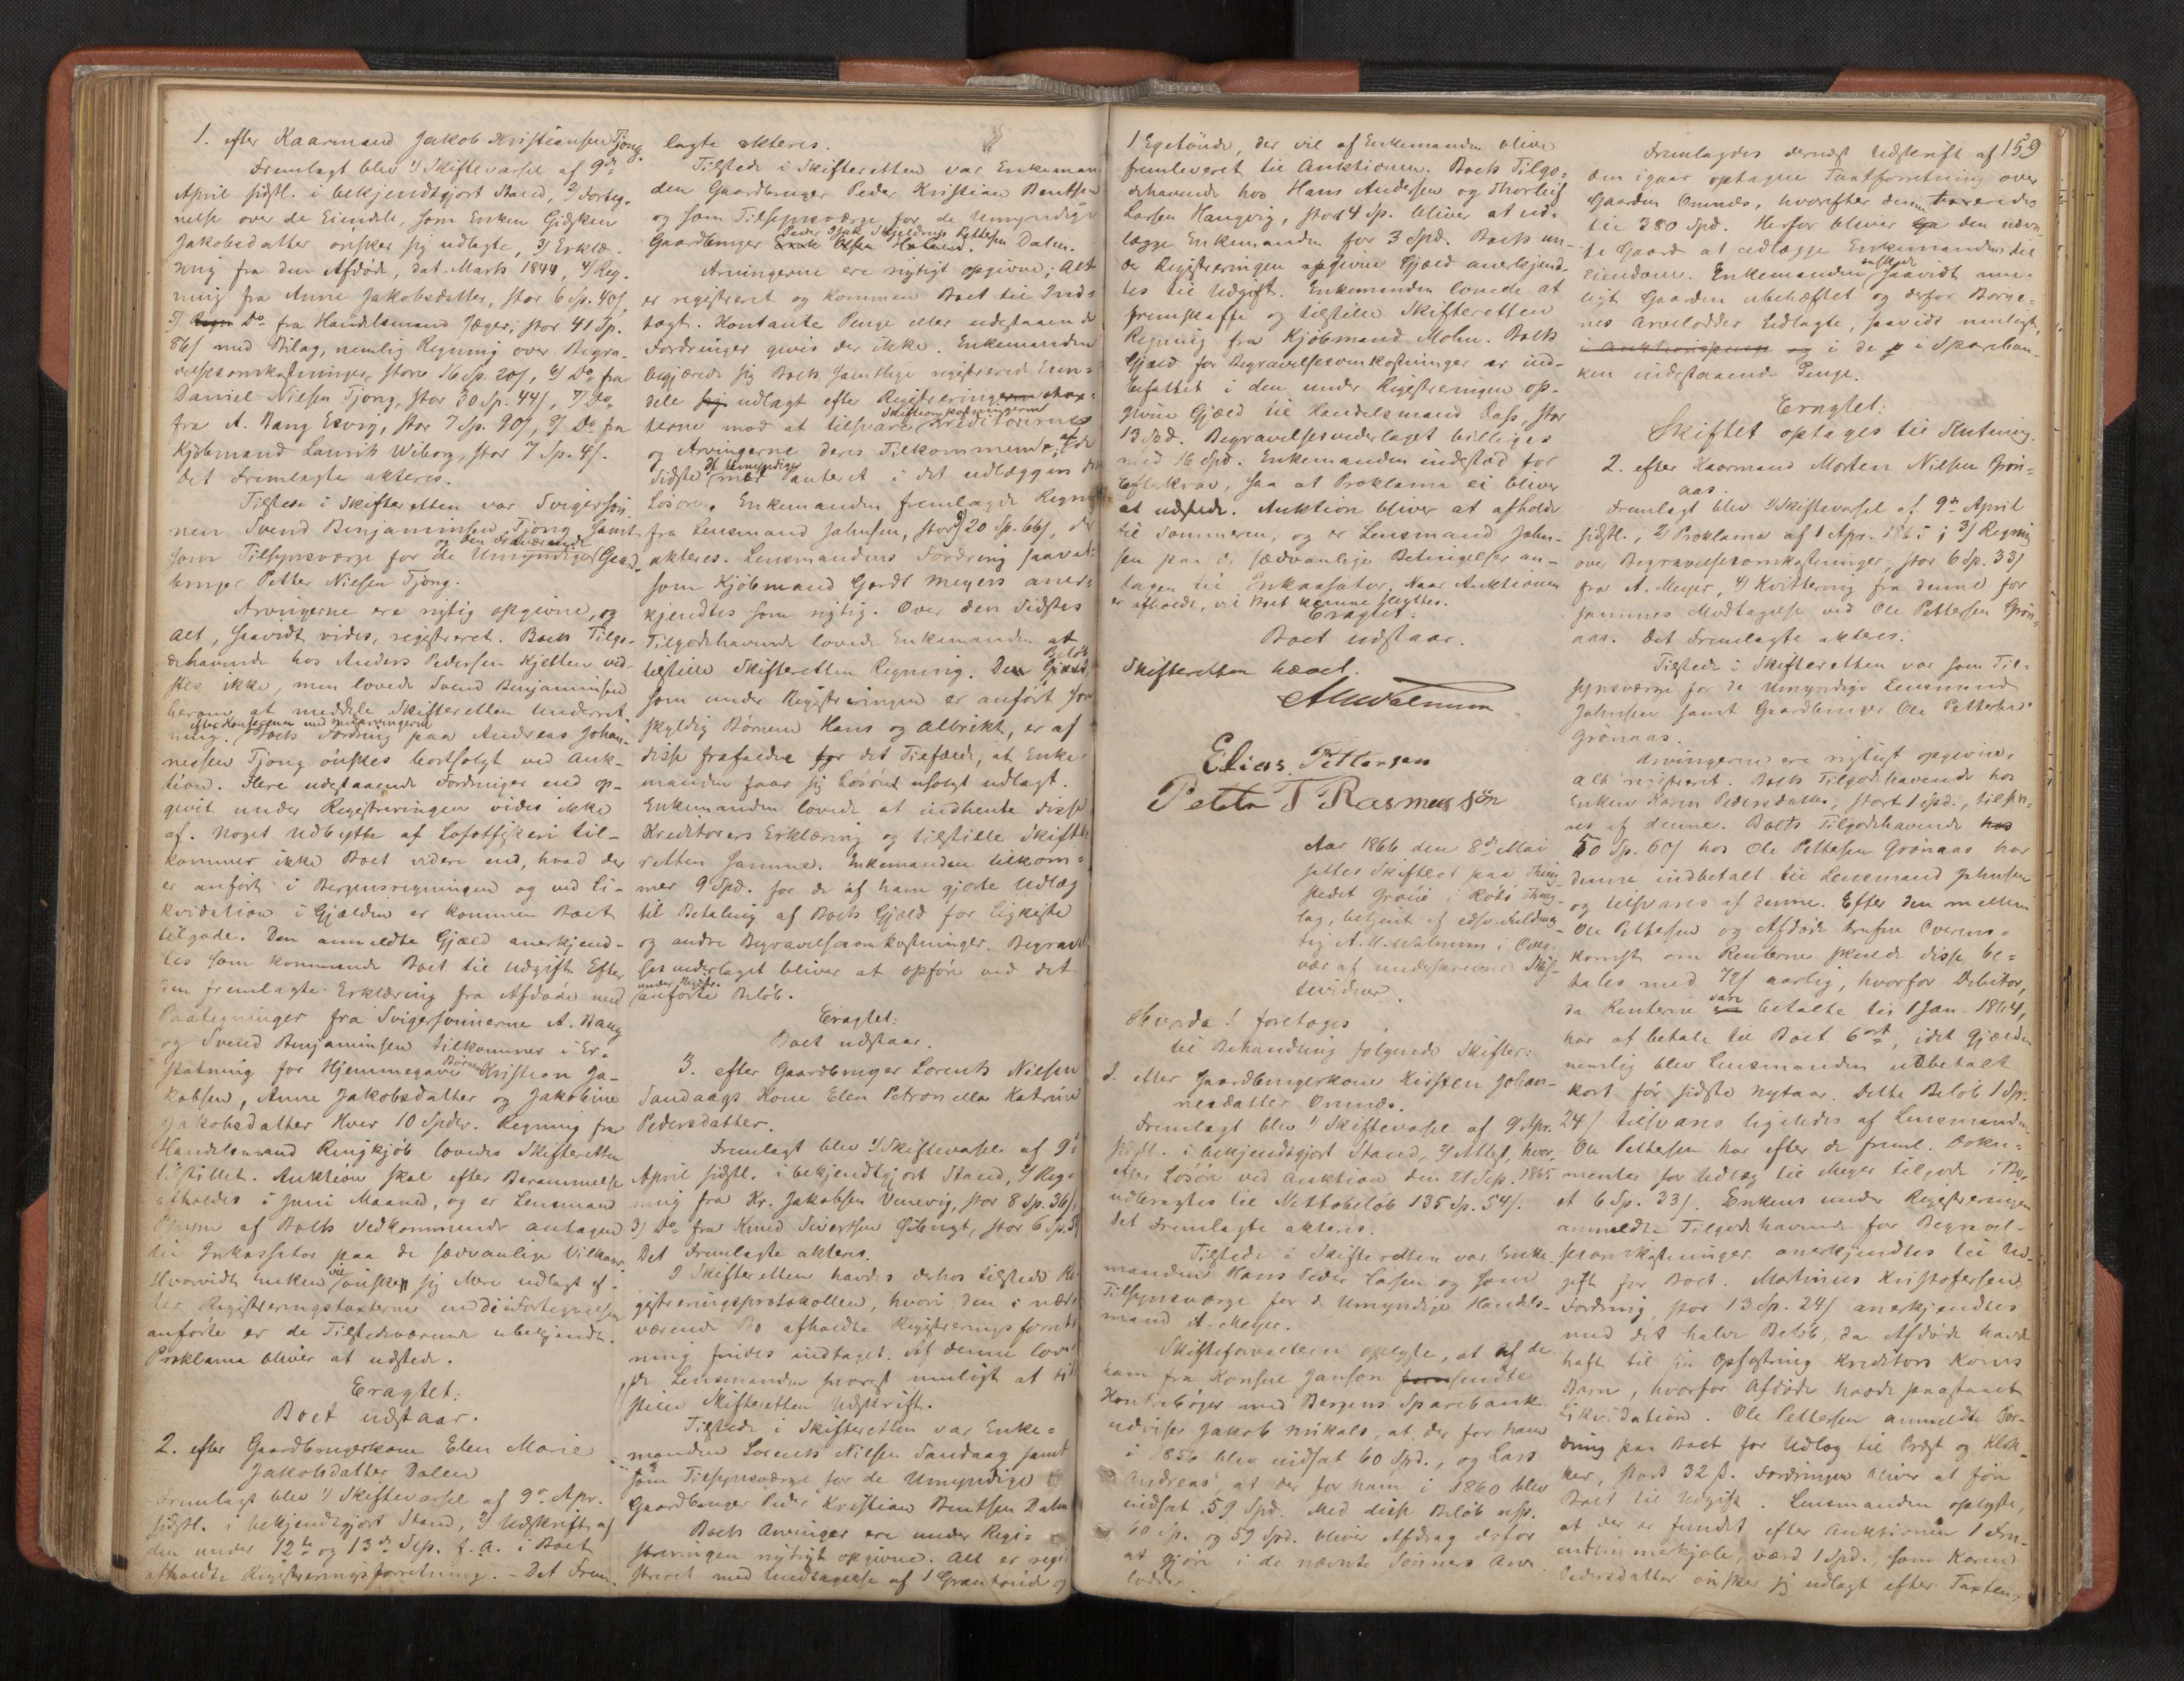 1. efter Kaarmand Jakob Kristiansen Tjong.
Fremlagt blev 1/ Skiftevarsel af 9de
April sidstl. i bekjendtgjort Stand, 2/ Forteg-
nelse over de Eiendele, som Enken Gidsken
Jakobsdatter ønsker sig udlagte, 3/ Erklæ-
ring fra den Afdøde, dat. Marts 1844, 4/ Reg-
ning fra Anne Jakobsdatter, stor 6 Sp. 40 ß,
5/ Do fra Handelsmand Jæger, stor 41 Sp.
86 ß med Bilag, nemlig Regning over Begra-
velsesomkostninger, store 16 Sp. 20 ß, 6/ Do fra
Daniel Nilsen Tjong, stor 30 Sp. 44 ß, 7/ Do
fra A. Bang Esvig, stor 7 Sp. 90 ß, 8/ Do fra
Kjøbmand Laurits Wiborg, stor 7 Sp. 4 ß.
Det Fremlagte akteres.
Tilstede i Skifteretten var Svigersøn-
nen Svend Benjaminsen Tjong samt
som Tilsynsværge for de og den fraværende Umyndige Gaard-
bruger Petter Nielsen Tjong.
Arvingerne ere rigtig opgivne, og
Alt, saavidt vides, registreret. Boets Tilgo-
dehavende hos Anders Pedersen Kjelten vid-
stes ikke, men lovede Svend Benjaminsen
herom at meddele Skifteretten Underret-
ning. efter Konference med Medarvingerne Boets Fordring paa Andreas Johan-
nessen Tjong ønskes bortsolgt ved Auk-
tion. Flere udestaaende Fordringer end op-
givet under Registreringen vides ikke
af. Noget Udbytte af Lofotfiskeri til-
kommer ikke Boet videre end, hvad der
er anført i Bergensregningen og ved Li-
kvidation i Gjælden er kommen Boet
tilgode. Den anmeldte Gjæld anerkjend-
tes som kommende Boet til Udgift. Efter
den fremlagte Erklæring fra Afdøde med
Paategninger fra Svigersønnerne A. Bang
og Svend Benjaminsen tilkommer i Er-
statning for Hjemmegave Børnene Kristian Ja-
kobsen, Anne Jakobsdatter og Jakobine
Jakobsdatter Hver 10 Spdlr. Regning fra
Handelsmand Ringkjøb lovedes Skifteretten
tilstillet. Auktion skal efter Berammelse
afholdes i Juni Maaned, og er Lensmand
af Boets Vedkommende antagen
til Inkassator paa de sædvanlige Vilkaar.
Hvorvidt Enken vil ønske sig Mere udlagt ef-
ter Registreringstaxterne end i Fortegnelsen
anførte er de Tilstedeværende ubekjendt.
Proklama bliver at udstede.
Eragtet:
Boet udstaar.
2. efter Gaardbrugerkone Elen Marie
Jakobsdatter Dalen
Fremlagt blev 1/ Skiftevarsel af 9de Apr.
sidstl. i bekjendtgjort Stand, 2/ Udskrift af
den under 12te og 13de Sep. f. a. i Boet
afholdte Registreringsforretning. - Det Frem-
lagte akteres.
Tilstede i Skifteretten var Enkeman-
den Gaardbruger Peder Kristian Bentsen
og som Tilsynsværge for de Umyndige
Gaardbruger Peder Isak Pettersen Dalen.
Arvingerne ere rigtigt opgivne; Alt
er registreret og kommen Boet til Ind-
tægt. Kontante Penge eller udestaaende
Fordringer gives der ikke. Enkemanden
begjærede sig Boets samtlige registrerede Eien-
dele udlagt efter Registreringstax-
terne mod at tilsvare Skifteomkostningerne Kreditorerne
og Arvingerne deres Tilkommende, af de
Sidste de Umyndige mod Panteret i det udlæggende
Løsøre. Enkemanden fremlagde Regning
fra Lensmand Jahnsen, stor 20 Sp. 66 ß, der
akteres. Lensmandens Fordring saavel
som Kjøbmand Gerdt Meyers aner-
kjendtes som rigtig. Over den Sidstes
Tilgodehavende lovede Enkemanden at
tilstille Skifteretten Regning. Det Beløb,
som under Registreringen er anført som
skyldig Børnene Hans og Albrikt, er af
disse frafaldne for det Tilfælde, at Enke-
manden faar sig Løsøret usolgt udlagt.
Enkemanden lovede at indhente disse
Kreditorers Erklæring og tilstille Skifte-
retten samme. Enkemanden tilkom-
mer 9 Spd. for de af ham gjorte Udlæg
til Betaling af Boets Gjæld for Ligkiste
og andre Begravelsesomkostninger. Begravel-
sesvederlaget bliver at opføre med det
under Registr. anførte Beløb.
Eragtet:
Boet udstaar.
3. efter Gaardbruger Lorents Nielsen
Sandaags Kone Elen Petronella Katrine
Pedersdatter.
Fremlagt blev 1/ Skiftevarsel af 9de
April sidstl. i bekjendtgjort Stand, 2/ Reg-
ning fra Kr. Jakobsen Unnvig, stor 8 Sp. 36 ß,
3/ Do fra Knud Sivertsen, stor 6 Sp.
Det Fremlagte akteres.
I Skifteretten havdes derhos tilstede Re-
gistreringsprotokollen, hvori den i nær-
værende Bo afholdte Registreringsforret-
ning findes indtaget. Af denne love-
de Lensmanden snarest muligt at til-
stille Skifteretten Udskrift.
Tilstede i Skifteretten var Enke-
manden Lorents Nilsen Sandaag samt
som Tilsynsværge for de Umyndige
Gaardbruger Peder Kristian Bentsen Dalen
Boets Arvinger ere under Regi-
streringen rigtigt opgivne. Alt er regi-
streret med Undtagelse af 1 Grantønde og
1 Egetønde, der vil af Enkemanden blive
fremleveret til Auktionen. Boets Tilgo-
dehavende hos Hans Andersen og Thorleif
Larsen Hangvig, stort 4 Sp. bliver at ud-
lægge Enkemanden for 3 Spd. Boets un-
der Registreringen opgivne Gjæld anerkjend-
tes til Udgift. Enkemanden lovede at
fremskaffe og tilstille Skifteretten
Regning fra Kjøbmand Mohn. Boets
Gjæld for Begravelsesomkostninger er ind-
befattet i den under Registreringen op-
givne Gjæld til Handelsmand Dass, stor
13 Spd. Begravelsesvederlaget billiges
med 16 Spd. Enkemanden indestod for
Efterkrav, saa at Proklama ei bliver
at udstede. Auktion bliver at afholde
til Sommeren, og er Lensmand Jahn-
sen paa de sædvanlige Betingelser an-
tagen til Inkassator. Naar Auktionen
er afholdt, vil Boet kunne sluttes.
Eragtet:
Boet udstaar.
Skifteretten hævet.
AMWalnum
Elias Pettersen
Petter T Rasmussøn
Aar 1866 den 8de Mai
sattes Skifteret paa Thing-
stedet Grønø i Rødø Thing-
lag, betjent af edsv. Fuldmæg-
tig A. M. Walnum i Over-
vær af underskrevne Skif-
tevidner.
Hvorda! foretoges
til Behandling følgende Skifter:
1. efter Gaardbrugerkone Kirsten Johan-
nesdatter Omnæs.
Fremlagt blev 1/ Skiftevarsel af 9 Apr.
sidstl. i bekjendtgjort Stand, 2/ Attest, hvor-
efter Løsøre ved Auktion den 21 Sep. 1865
udbragtes til Nettobeløb 135 Sp. 54 ß.
Det Fremlagte akteres.
Tilstede i Skifteretten var Enke-
manden Hans Peder Larsen og som
Tilsynsværge for de Umyndige Handels-
mand A. Meyer.
Skifteforvalteren oplyste, at af de
ham fra Konsul Janson sendte
Kontrabøger med Bergens Sparebank
udviser Jakob Nikals, at der for ham
i 1856 blev indsat 60 Spd., og Lars
Andreas', at der for ham i 1860 blev
indsat 59 Spd. Med disse Beløb resp.
60 Sp. og 59 Spd. bliver Afdrag derfor
at gjøre i de nævnte Sønners Arve-
lodder.
159
Fremlagdes dernæst Udskrift af
den igaar optagne Taxtforretning over
Gaarden Omnæs, hvorefter denne taxeredes
til 380 Spd. Herfor bliver den nævn-
te Gaard at udlægge Enkemanden til
Eiendom. Enkemanden ønskede saavidt mu-
ligt Gaarden ubehæftet og derfor Børne-
nes Arvelodder udlagte, saavidt muligt,
i Auktionspenge og i de i Spareban-
ken indestaaende Penge.
Eragtet:
Skiftet optages til Slutning.
2. efter Kaarmand Morten Nilsen Grøn-
aas.
Fremlagt blev 1/ Skiftevarsel af 9de April
sidstl., 2/ Proklama af 1 Apr. 1865; 3/ Regning
over Begravelsesomkostninger, stor 6 Sp. 33 ß
fra A. Meyer, 4/ Kvittering fra denne for
sammes Modtagelse ved Ole Pettersen Grøn-
aas. Det Fremlagte akteres.
Tilstede i Skifteretten var som Til-
synsværge for de Umyndige Lensmand
Jahnsen samt Gaardbruger Ole Pettersen
Grønaas.
Arvingerne ere rigtigt opgivne,
Alt registreret. Boets Tilgodehavende hos
Enken Karen Pedersdatter, stort 1 Spd., tilsva-
res af denne. Boets Tilgodehavende
50 Sp. 60 ß hos Ole Pettersen Grønaas har
denne indbetalt til Lensmand Jahnsen
og tilsvares af denne. Efter den mellem
Ole Pettersen og Afdøde trufne Overens-
komst om Renterne skulde disse be-
tales med 72 ß aarlig, hvorfor Debitor,
da Renterne vare betalte til 1 Jan. 1864,
har at betale til Boet 6 ort, idet Gjælden
nemlig blev Lensmanden udbetalt
kort før sidste Nytaar. Dette Beløb 1 Sp.
24 ß tilsvares ligeledes af Lensmanden.
Ole Pettersen har efter de freml. Doku-
menter for Udlæg til Meyer tilgode i Bo-
et 6 Sp. 33 ß. Enkens under Registreringen
anmeldte Tilgodehavende for Begravel-
sesomkostninger anerkjendtes til Ud-
gift for Boet. Martinus Kristofersens
Fordring, stor 13 Sp. 24 ß anerkjendtes
med det halve Beløb, da Afdøde havde
haft til sin Opfostring Kreditors Kones
Barn, hvorfor Afdøde havde paastaaet
Likvidation. Ole Pettersen anmeldte For-
dring paa Boet for Udlæg til Præst og Klok-
ker, stort 32 ß. Fordringen bliver at føre
Boet til Udgift. Lensmanden oplyste,
at der er fundet efter Auktionen 1 Fru-
entimmerkjole, værd 1 Spd., som Karen
Pedersdatter ønsker sig udlagt efter Taxten,